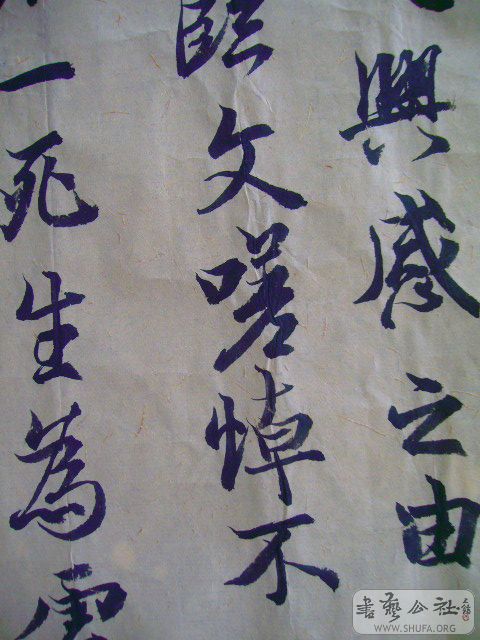 興感之由
臨文嗟悼不
一死生為虛
書藝公社
WWW.SHUFA.ORG